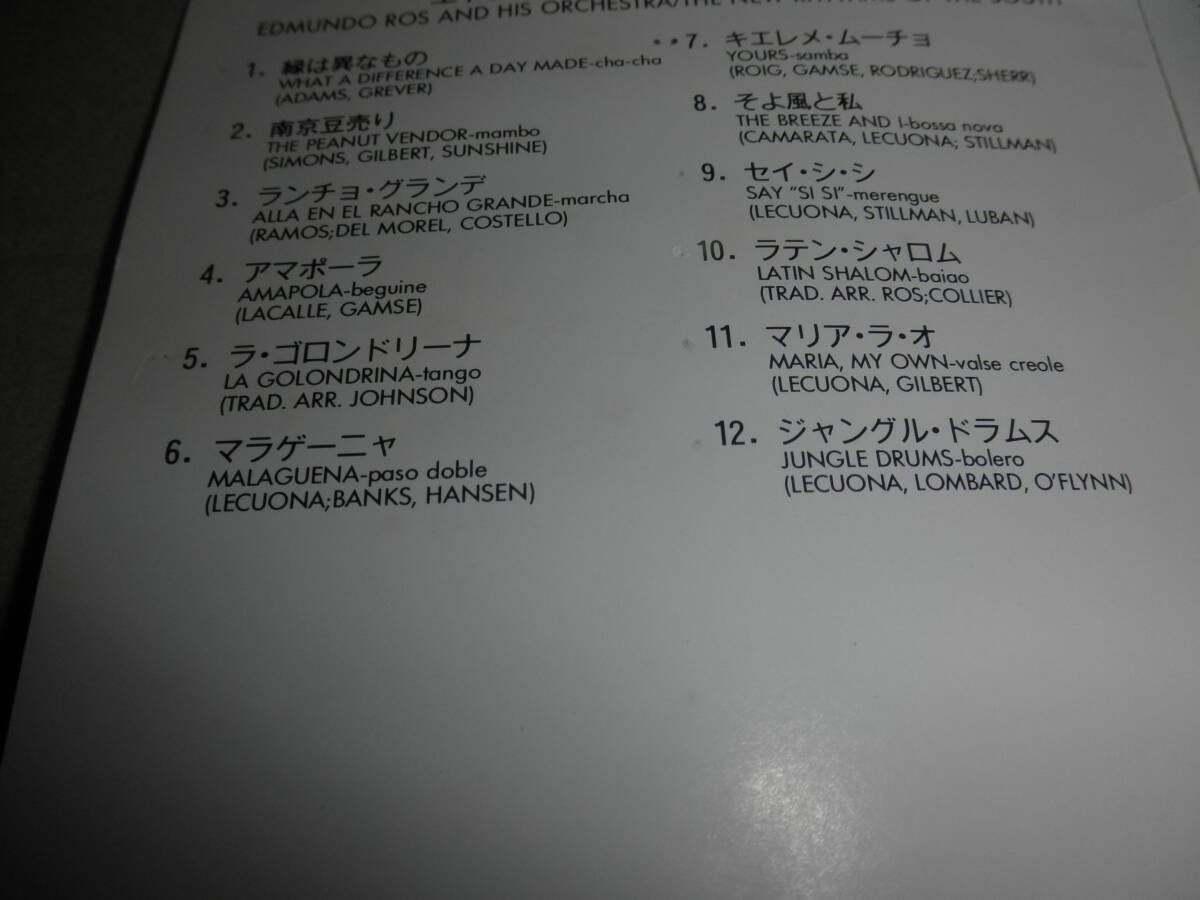 EDMUNDO ROS AND HIS ORCHESTRA/THE NEW RHYTHMS OF THE SOUTH
1. 縁は異なもの
WHAT A DIFFERENCE A DAY MADE-cha-cha
(ADAMS, GREVER)
2. 南京豆売り
THE PEANUT VENDOR-mambo
(SIMONS, GILBERT, SUNSHINE)
3. ランチョ・グランデ
ALLA EN EL RANCHO GRANDE-marcha
(RAMOS;DEL MOREL, COSTELLO)
4. アマポーラ
AMAPOLA-beguine
(LACALLE, GAMSE)
5. ラ・ゴロンドリーナ
LA GOLONDRINA-tango
(TRAD. ARR. JOHNSON)
6. マラゲーニャ
MALAGUENA-paso doble
(LECUONA;BANKS, HANSEN)
7. キエレメ・ムーチョ
YOURS-samba
(ROIG, GAMSE, RODRIGUEZ;SHERR)
8. そよ風と私
THE BREEZE AND I-bossa nova
(CAMARATA, LECUONA; STILLMAN)
9. セイ・シ・シ
SAY "SI SI"-merengue
(LECUONA, STILLMAN, LUBAN)
10. ラテン・シャロム
LATIN SHALOM-baiao
(TRAD. ARR. ROS;COLLIER)
11. マリア・ラ・オ
MARIA, MY OWN-valse creole
(LECUONA, GILBERT)
12. ジャングル・ドラムス
JUNGLE DRUMS-bolero
(LECUONA, LOMBARD, O'FLYNN)